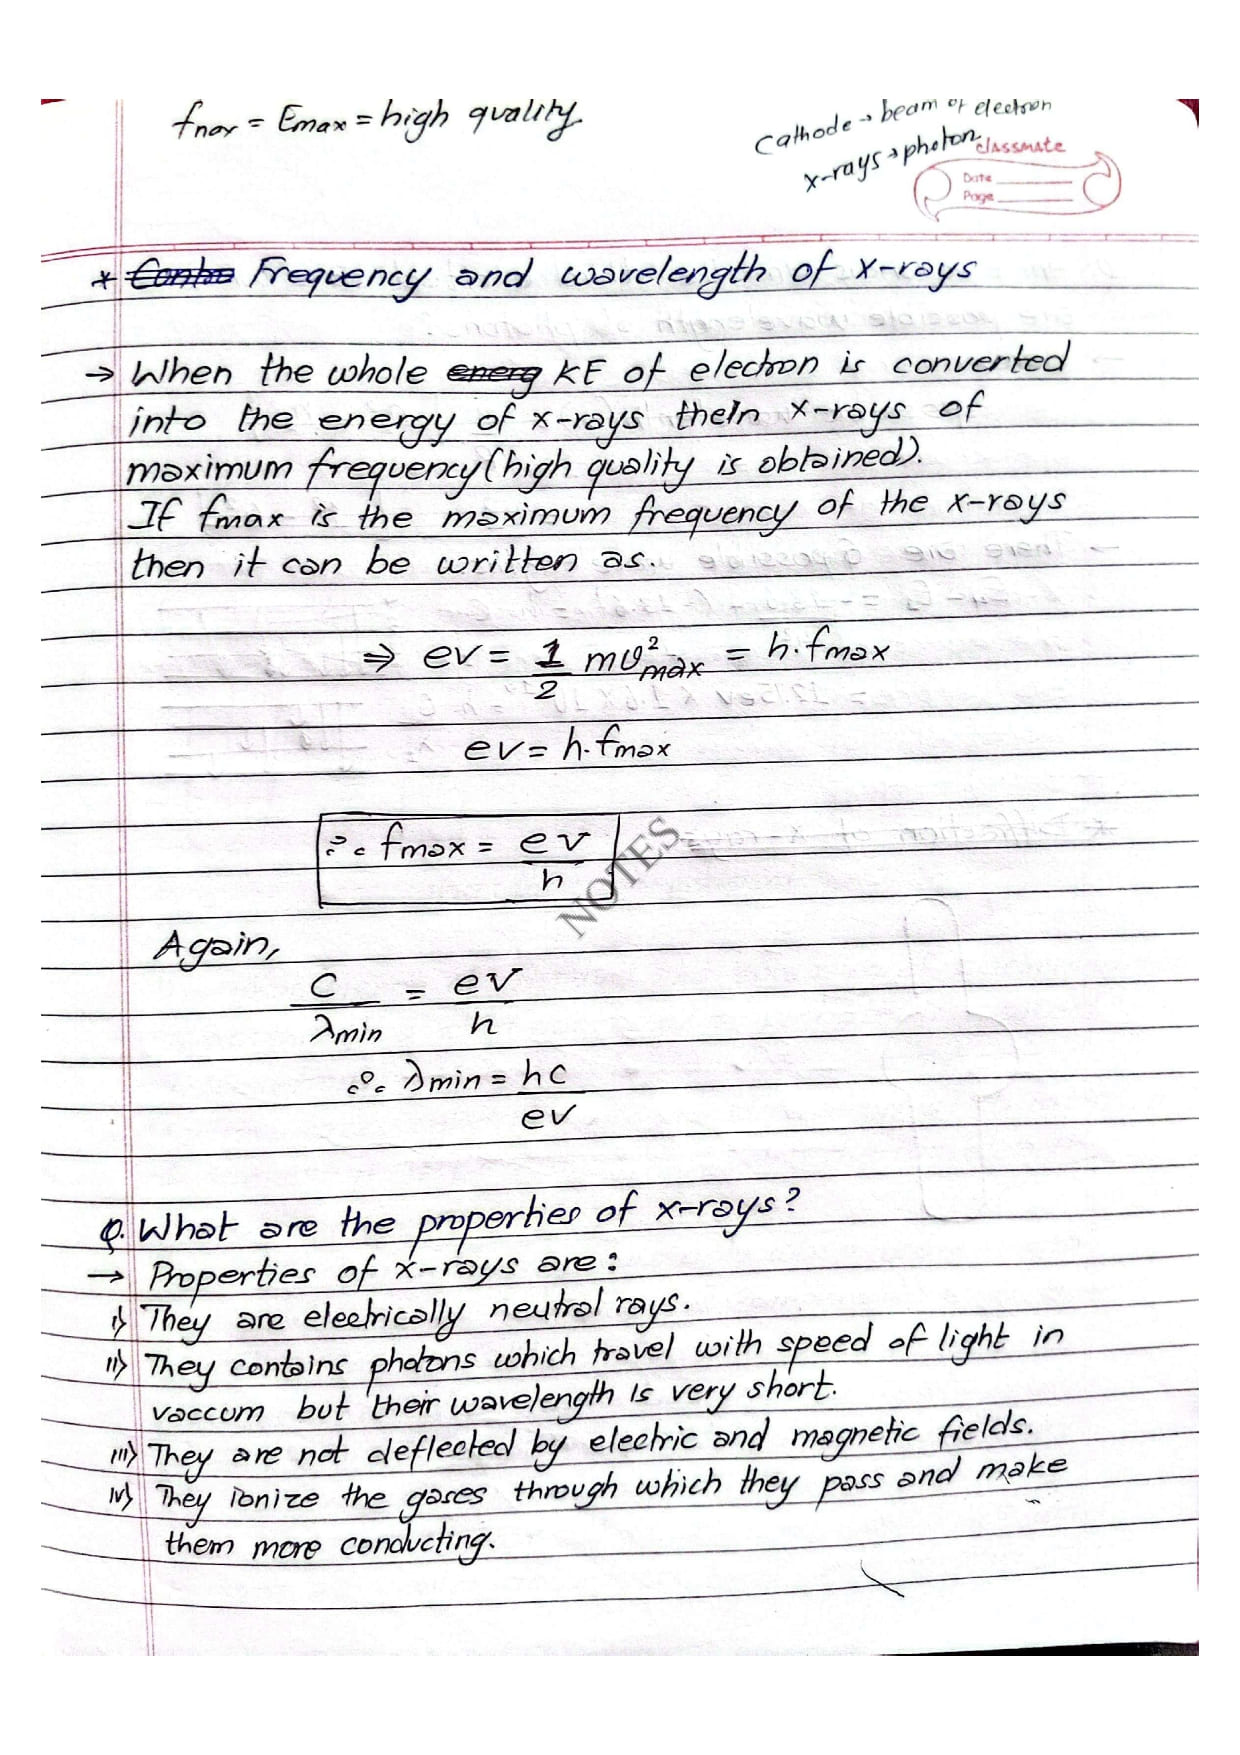 fmax = Emax = high quality.
Cathode → beam of electron
x-rays → photon
classmate
Date
Page
* Frequency and wavelength of x-rays
→ When the whole energ KE of electron is converted
into the energy of x-rays theIn x-rays of
maximum frequency (high quality is obtained).
If fmax is the maximum frequency of the x-rays
then it can be written as.
⇒ ev = 1/2 mv²max = h.fmax
ev = h.fmax
∴ fmax = ev/h
NOTES
Again,
c/λmin = ev/h
∴ λmin = hc/ev
Q. What are the properties of x-rays?
→ Properties of x-rays are:
i) They are electrically neutral rays.
ii) They contains photons which travel with speed of light in
vaccum but their wavelength is very short.
iii) They are not deflected by electric and magnetic fields.
iv) They ionize the gases through which they pass and make
them more conducting.